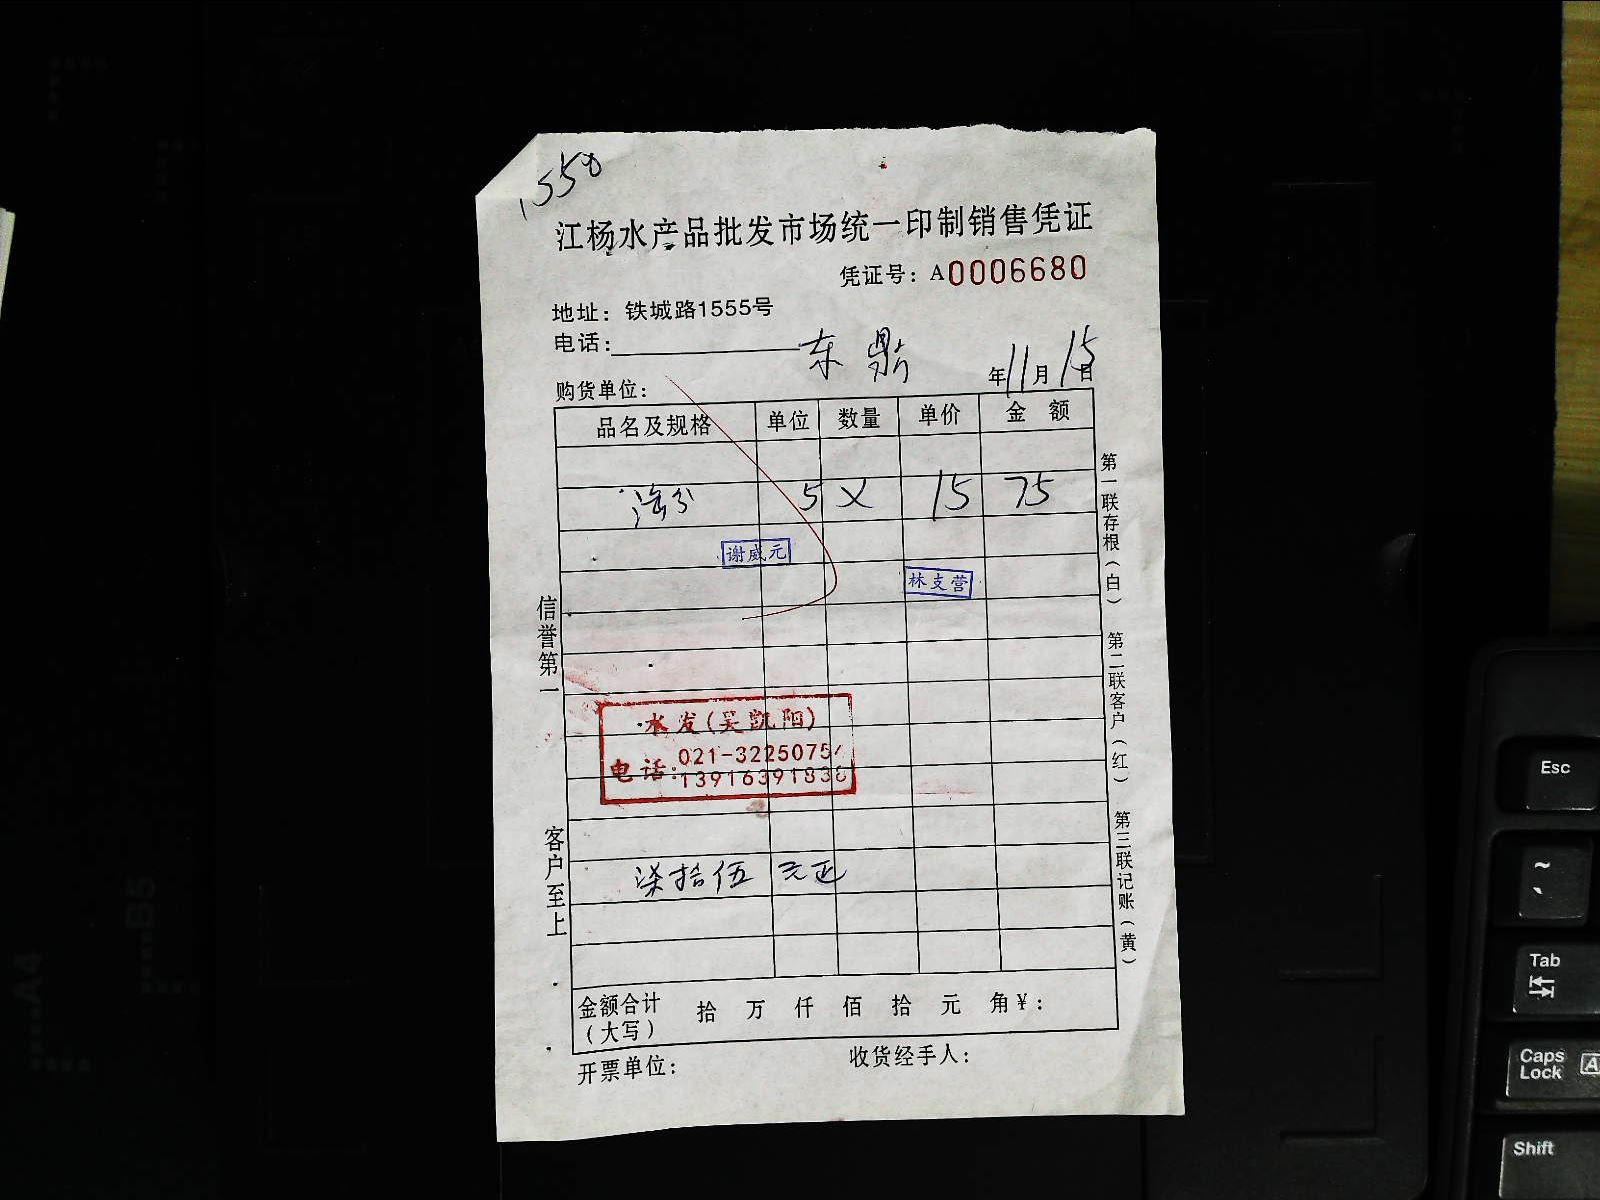 1550
江杨水产品批发市场统一印制销售凭证
凭证号：A0006680
地址：铁城路1555号
电话：
东鼎
年11月15日
购货单位：
品名及规格 单位 数量 单价 金 额
5 X 15 75
谢威元
林支营
水发(吴凯阳)
电话：021-3225075
139163918
柒拾伍 元正
金额合计（大写） 拾 万 仟 佰 拾 元 角￥：
开票单位： 收货经手人：
信誉第一
客户至上
第一联存根（白）
第二联客户（红）
第三联记账（黄）
Esc
~
Tab
Caps Lock
A
Shift
B5
A4